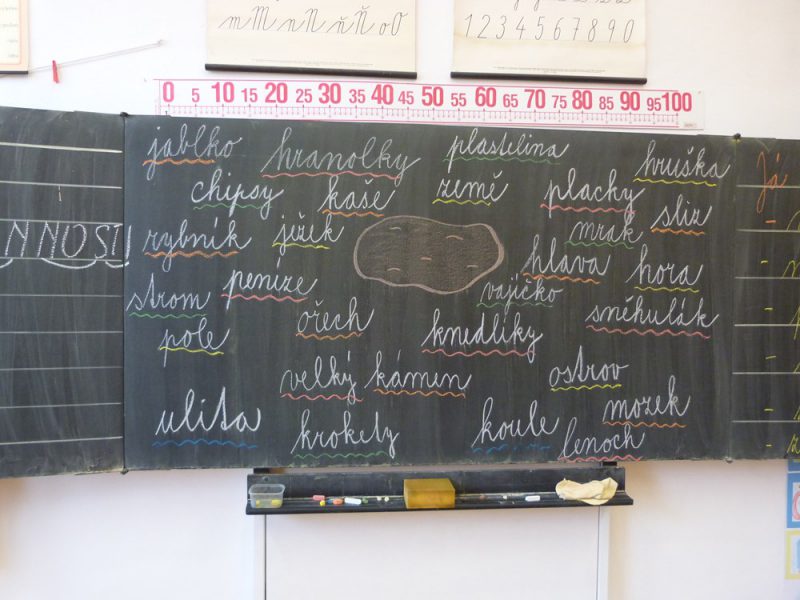 m M n N ň Ň o O
1 2 3 4 5 6 7 8 9 0
0 5 10 15 20 25 30 35 40 45 50 55 60 65 70 75 80 85 90 95 100
jablko hranolky plastelina hruška
chipsy kaše země plachy
sliz
mrak
rybník ježek
hlava hora
peníze
strom vajíčko
ořech knedlíky sněhulák
pole
velký kámen ostrov
mozek
ulita krokety koule lenoch
NNOST!
Já